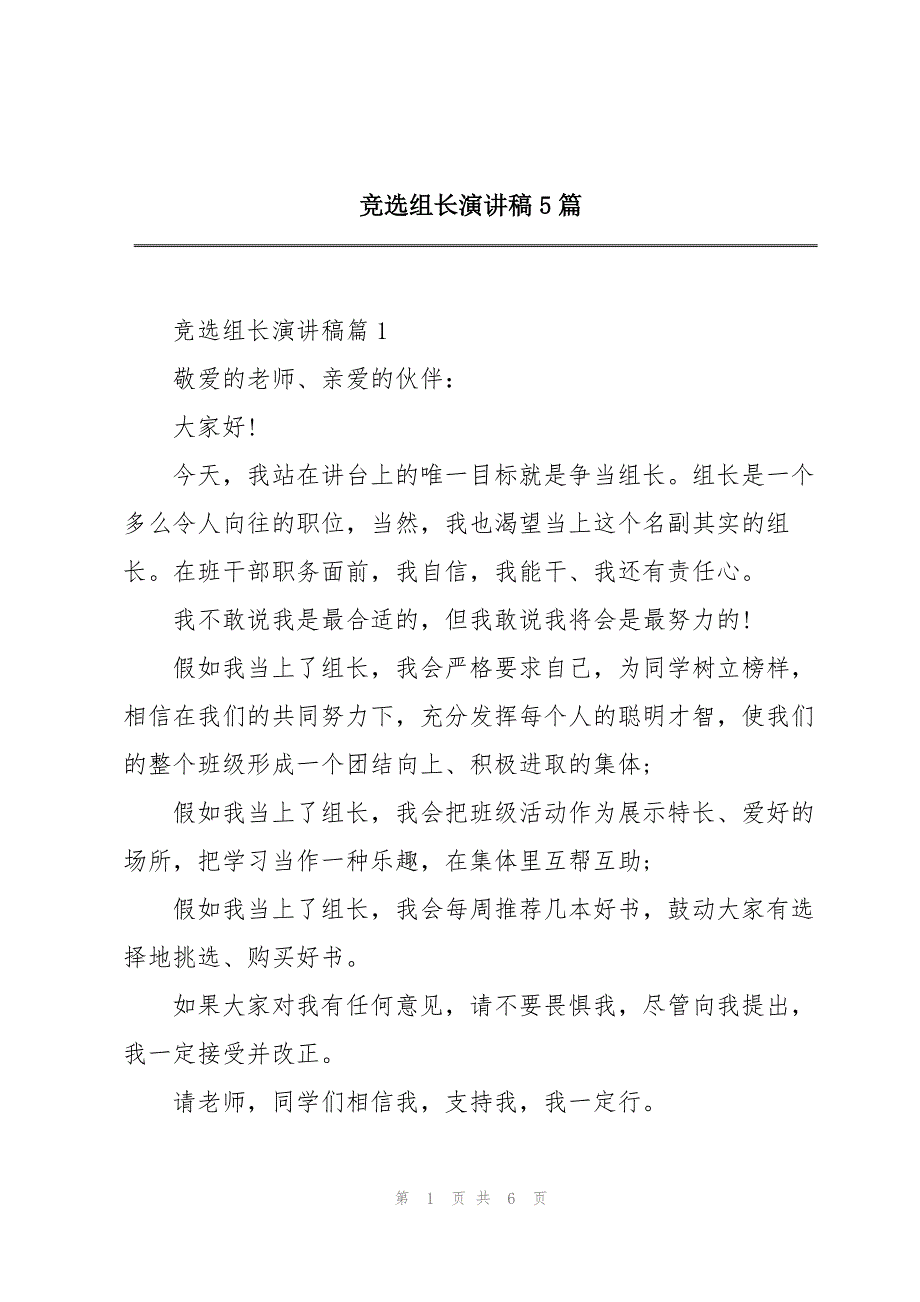 竞选组长演讲稿 5 篇
竞选组长演讲稿篇 1
敬爱的老师、亲爱的伙伴:
大家好!
今天，我站在讲台上的唯一目标就是争当组长。组长是一个
多么令人向往的职位，当然，我也渴望当上这个名副其实的组
长。在班干部职务面前，我自信，我能干、我还有责任心。
我不敢说我是最合适的，但我敢说我将会是最努力的!
假如我当上了组长，我会严格要求自己，为同学树立榜样，
相信在我们的共同努力下，充分发挥每个人的聪明才智，使我们
的整个班级形成一个团结向上、积极进取的集体;
假如我当上了组长，我会把班级活动作为展示特长、爱好的
场所，把学习当作一种乐趣，在集体里互帮互助;
假如我当上了组长，我会每周推荐几本好书，鼓动大家有选
择地挑选、购买好书。
如果大家对我有任何意见，请不要畏惧我，尽管向我提出，
我一定接受并改正。
请老师，同学们相信我，支持我，我一定行。
第 1 页 共 6 页